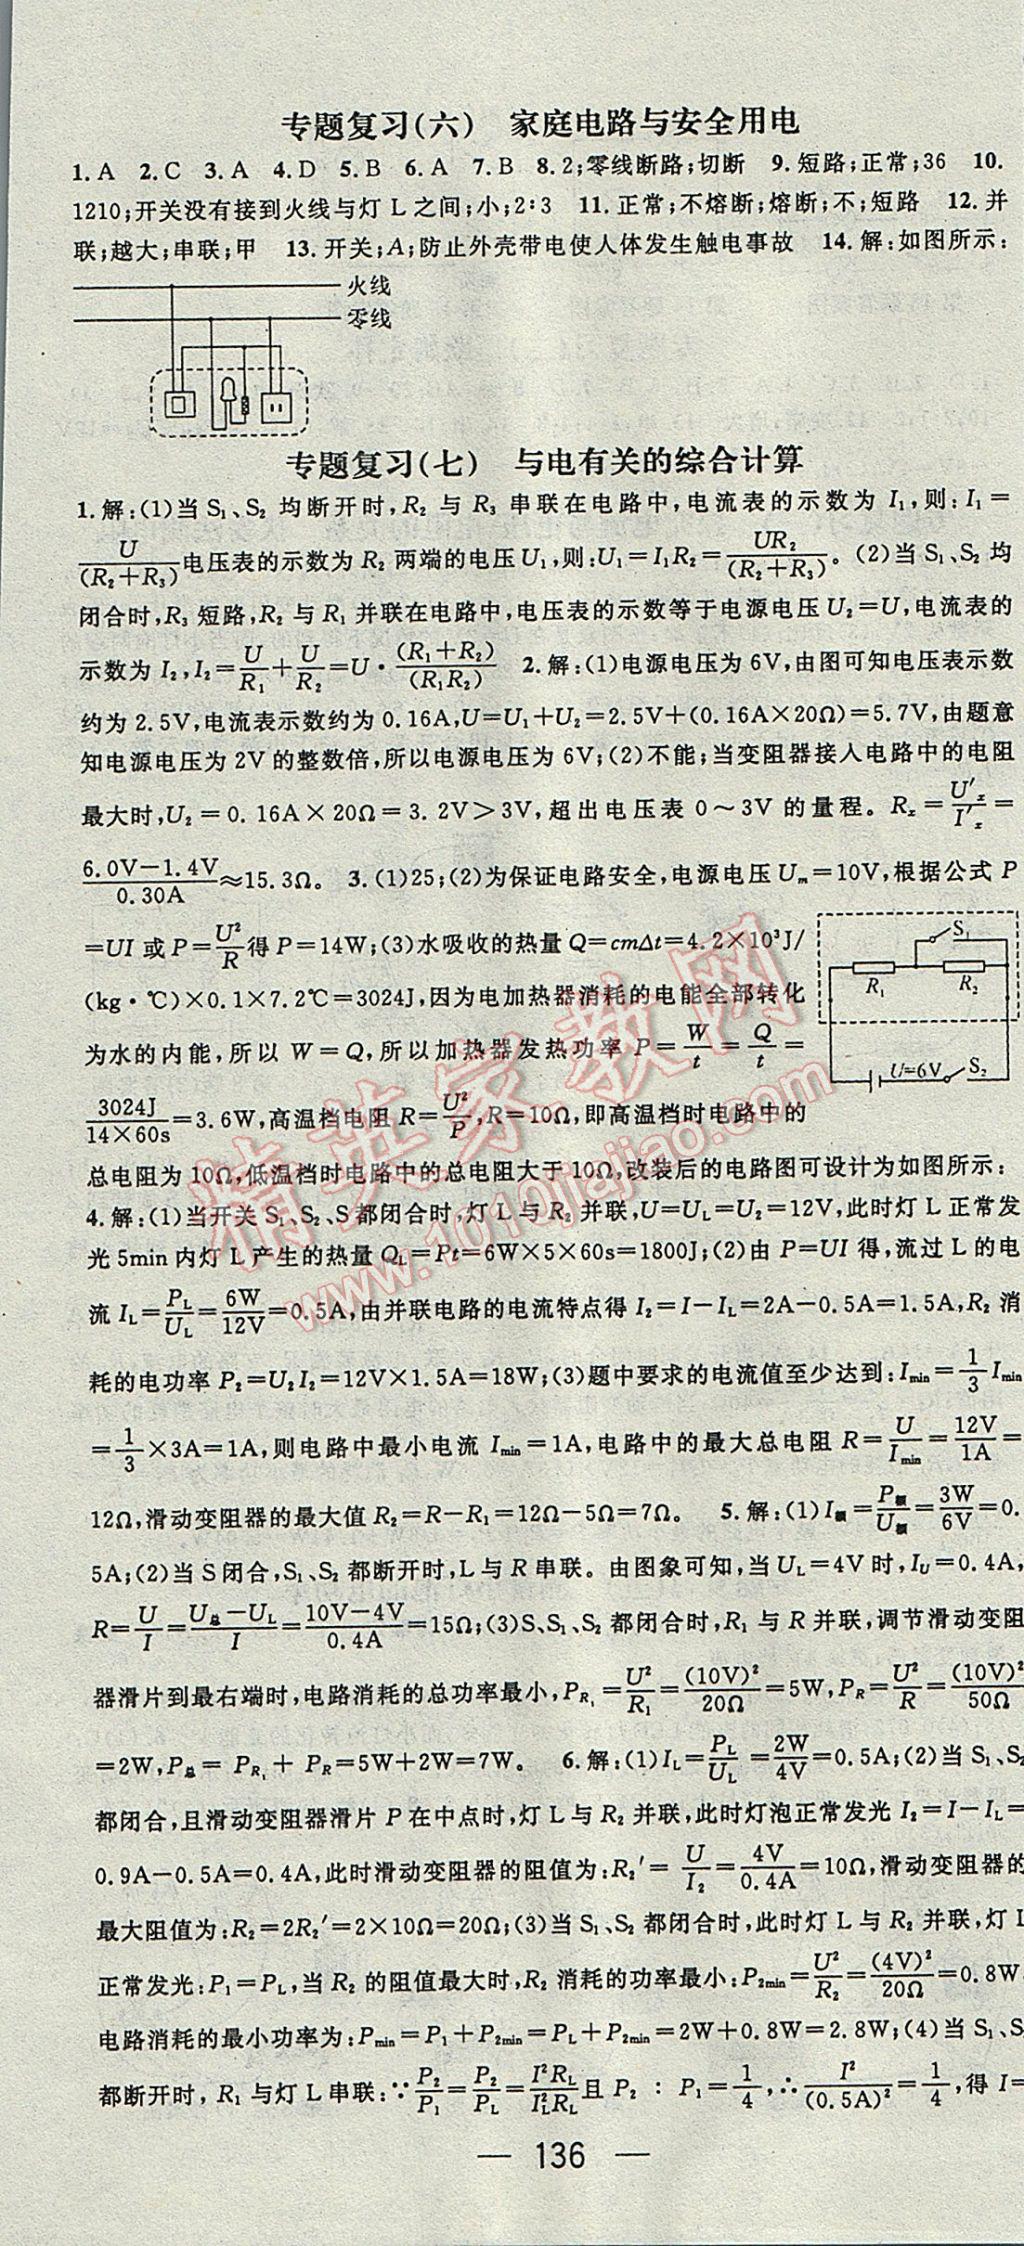 专题复习(六) 家庭电路与安全用电
1.A 2.C 3.A 4.D 5.B 6.A 7.B 8.2;零线断路;切断 9.短路;正常;36 10.
1210;开关没有接到火线与灯 L 之间;小;2∶3 11.正常;不熔断;熔断;不;短路 12.并
联;越大;串联;甲 13.开关;A;防止外壳带电使人体发生触电事故 14.解:如图所示:
火线
零线
专题复习(七) 与电有关的综合计算
1.解:(1)当 S₁、S₂ 均断开时,R₂ 与 R₃ 串联在电路中,电流表的示数为 I₁,则:I₁=
U/(R₂+R₃)电压表的示数为 R₂ 两端的电压 U₁,则:U₁=I₁R₂=UR₂/(R₂+R₃)。(2)当 S₁、S₂ 均
闭合时,R₃ 短路,R₂ 与 R₁ 并联在电路中,电压表的示数等于电源电压 U₂=U,电流表的
示数为 I₂,I₂=U/R₁+U/R₂=U·(R₁+R₂)/(R₁R₂) 2.解:(1)电源电压为 6V,由图可知电压表示数
约为 2.5V,电流表示数约为 0.16A,U=U₁+U₂=2.5V+(0.16A×20Ω)=5.7V,由题意
知电源电压为 2V 的整数倍,所以电源电压为 6V;(2)不能;当变阻器接入电路中的电阻
最大时,U₂=0.16A×20Ω=3.2V>3V,超出电压表 0~3V 的量程。Rₓ=U′ₓ/I′ₓ=
6.0V-1.4V/0.30A≈15.3Ω。 3.(1)25;(2)为保证电路安全,电源电压 Uₘ=10V,根据公式 P
=UI 或 P=U²/R得 P=14W;(3)水吸收的热量 Q=cmΔt=4.2×10³J/
(kg·℃)×0.1×7.2℃=3024J,因为电加热器消耗的电能全部转化
为水的内能,所以 W=Q,所以加热器发热功率 P=W/t=Q/t=
3024J/14×60s=3.6W,高温档电阻 R=U²/P,R=10Ω,即高温档时电路中的
S₁
R₁ R₂
U=6V S₂
总电阻为 10Ω,低温档时电路中的总电阻大于 10Ω,改装后的电路图可设计为如图所示:
4.解:(1)当开关 S₁、S₂、S 都闭合时,灯 L 与 R₂ 并联,U=U_L=U₂=12V,此时灯 L 正常发
光 5min 内灯 L 产生的热量 Q_L=Pt=6W×5×60s=1800J;(2)由 P=UI 得,流过 L 的电
流 I_L=P_L/U_L=6W/12V=0.5A,由并联电路的电流特点得 I₂=I-I_L=2A-0.5A=1.5A,R₂ 消
耗的电功率 P₂=U₂I₂=12V×1.5A=18W;(3)题中要求的电流值至少达到:I_min=1/3 I_min
=1/3×3A=1A,则电路中最小电流 I_min=1A,电路中的最大总电阻 R=U/I_min=12V/1A=
12Ω,滑动变阻器的最大值 R₂=R-R₁=12Ω-5Ω=7Ω。 5.解:(1)I_额=P_额/U_额=3W/6V=0.
5A;(2)当 S闭合,S₁、S₂ 都断开时,L 与 R 串联。由图象可知,当 U_L=4V 时,I_U=0.4A,
R=U/I=U_总-U_L/I=10V-4V/0.4A=15Ω;(3)S、S₁、S₂ 都闭合时,R₁ 与 R 并联,调节滑动变阻
器滑片到最右端时,电路消耗的总功率最小,P_R₁=U²/R₁=(10V)²/20Ω=5W,P_R=U²/R=(10V)²/50Ω
=2W,P_总=P_R₁+P_R=5W+2W=7W。 6.解:(1)I_L=P_L/U_L=2W/4V=0.5A;(2)当 S₁、S₂
都闭合,且滑动变阻器滑片 P 在中点时,灯 L 与 R₂ 并联,此时灯泡正常发光 I₂=I-I_L=
0.9A-0.5A=0.4A,此时滑动变阻器的阻值为:R₂′=U/I₂=4V/0.4A=10Ω,滑动变阻器的
最大阻值为:R₂=2R₂′=2×10Ω=20Ω;(3)当 S₁、S₂ 都闭合时,此时灯 L 与 R₂ 并联,灯 L
正常发光:P₁=P_L,当 R₂ 的阻值最大时,R₂ 消耗的功率最小:P_2min=U²/R₂=(4V)²/20Ω=0.8W
电路消耗的最小功率为:P_min=P₁+P_2min=P_L+P_2min=2W+0.8W=2.8W;(4)当 S₁、S₂
都断开时,R₁ 与灯 L 串联:∵P₂/P₁=P₂/P_L=I²R_L/I_L²R_L且 P₂∶P₁=1/4,∴I²/(0.5A)²=1/4,得 I=
— 136 —
精英家教网
www.1010jiajiao.com